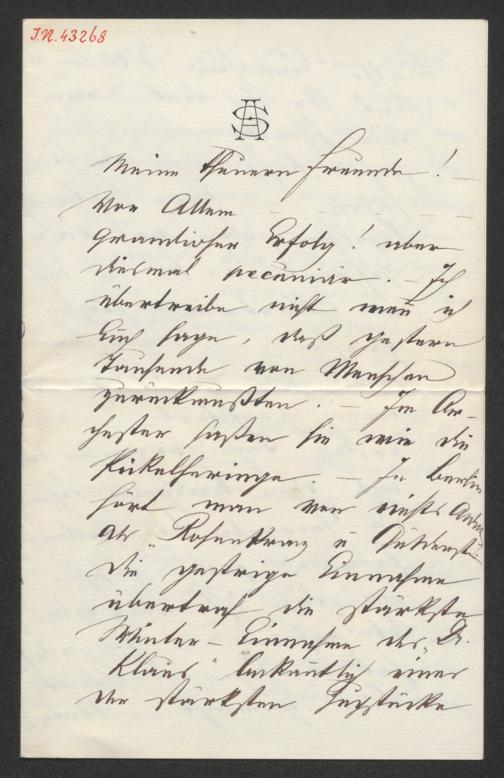 I.N. 43268
AS
Meine Theuern Freunde! —
Vor Allem — — — —
Grandioser Erfolg! aber
diesmal pecuniär. — Ich
übertreibe nicht wenn ich
Euch sage, daß gestern
Tausende von Menschen
zurückmußten. — Im Or-
chester saßen sie wie die
Pickelheringe — In Berlin
hört man von nichts Anderm
als „Rosenkranz u Güldenst.“
Die gestrige Einnahme
übertraf die stärkste
Winter-Einnahme des „Dr.
Klaus“ bekanntlich eines
der stärksten Zugstücke